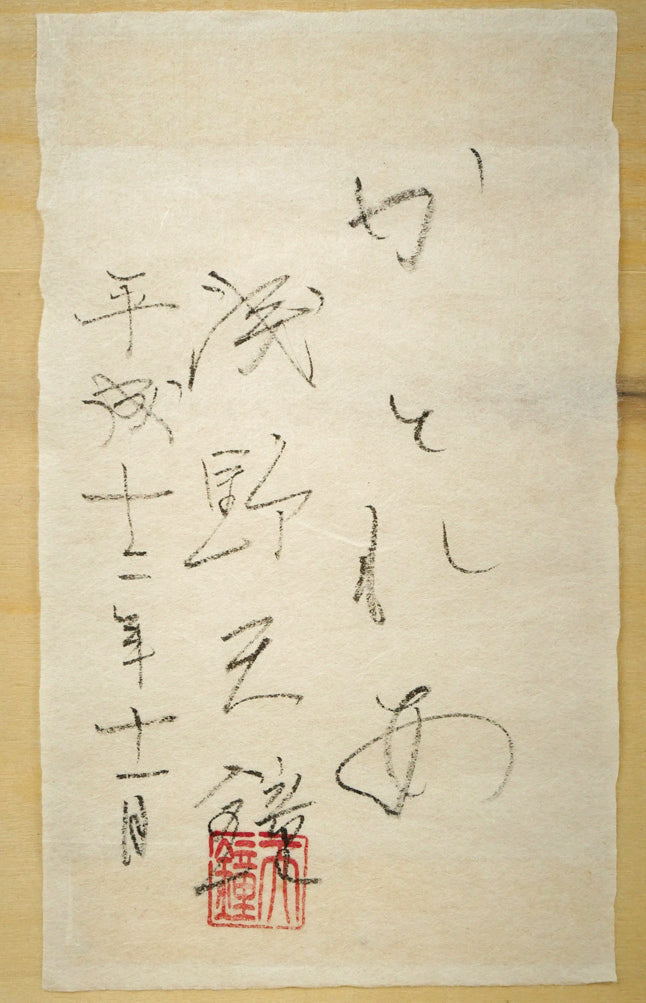 かとれあ
浅野天鐘
平成十二年十一月
天鐘